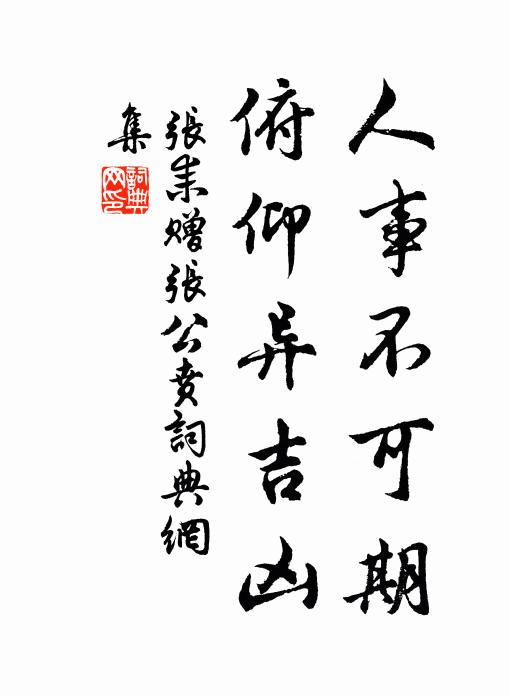 人事不可期
俯仰异吉凶
張耒贈張公賁詞典網
集
詞典
网印